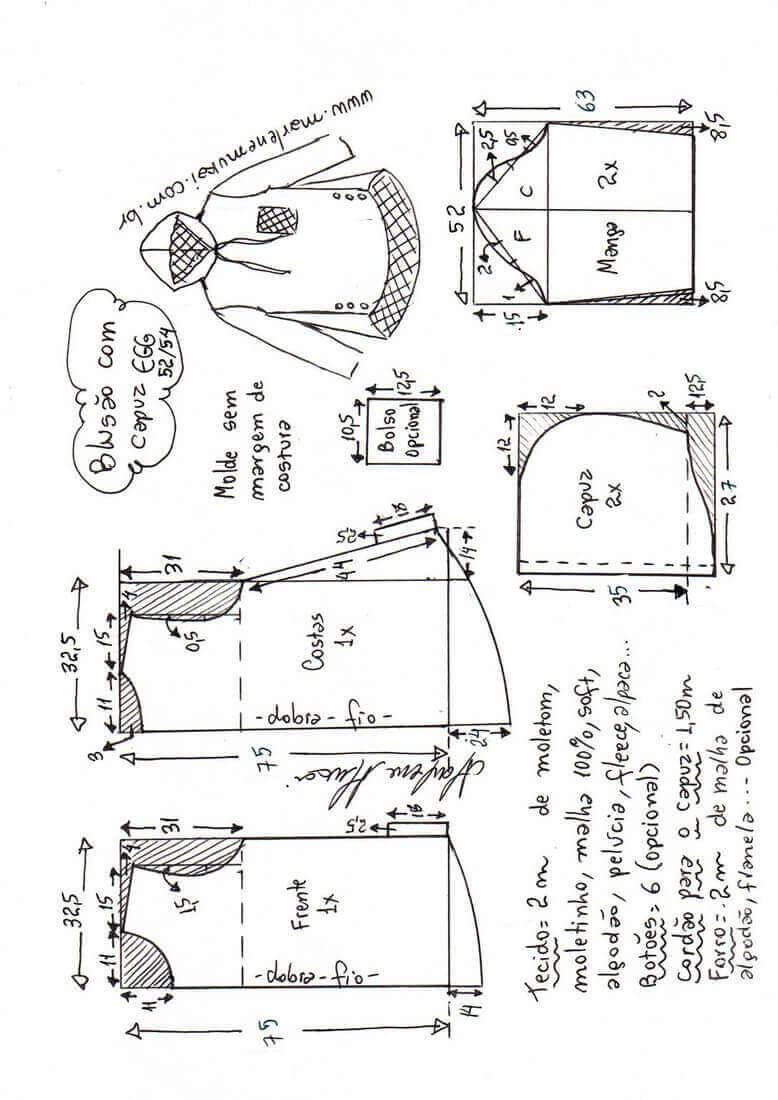 Blusão com
capuz EGG
52/54
www.marlenemukai.com.br
Molde sem
margem de
costura
10,5
12,5
Bolso
Opcional
52
63
15
2,5
0,5
2
1
F
C
Manga
2x
8,5
8,5
32,5
11
15
4
31
3
0,5
75
Costas
1x
-dobra-fio-
44
2,5
18
14
24
12
12
Capuz
2x
2
12,5
35
27
Marlene Mukai
32,5
11
15
4
31
11
1,5
75
Frente
1x
-dobra-fio-
2,5
18
14
Tecido= 2m de moletom,
moletinho, malha 100%, soft,
algodão, pelúcia, fleece, alpaca...
Botões= 6 (opcional)
Cordão para o capuz= 1,50m
Forro= 2m de malha de
algodão, flanela... - Opcional